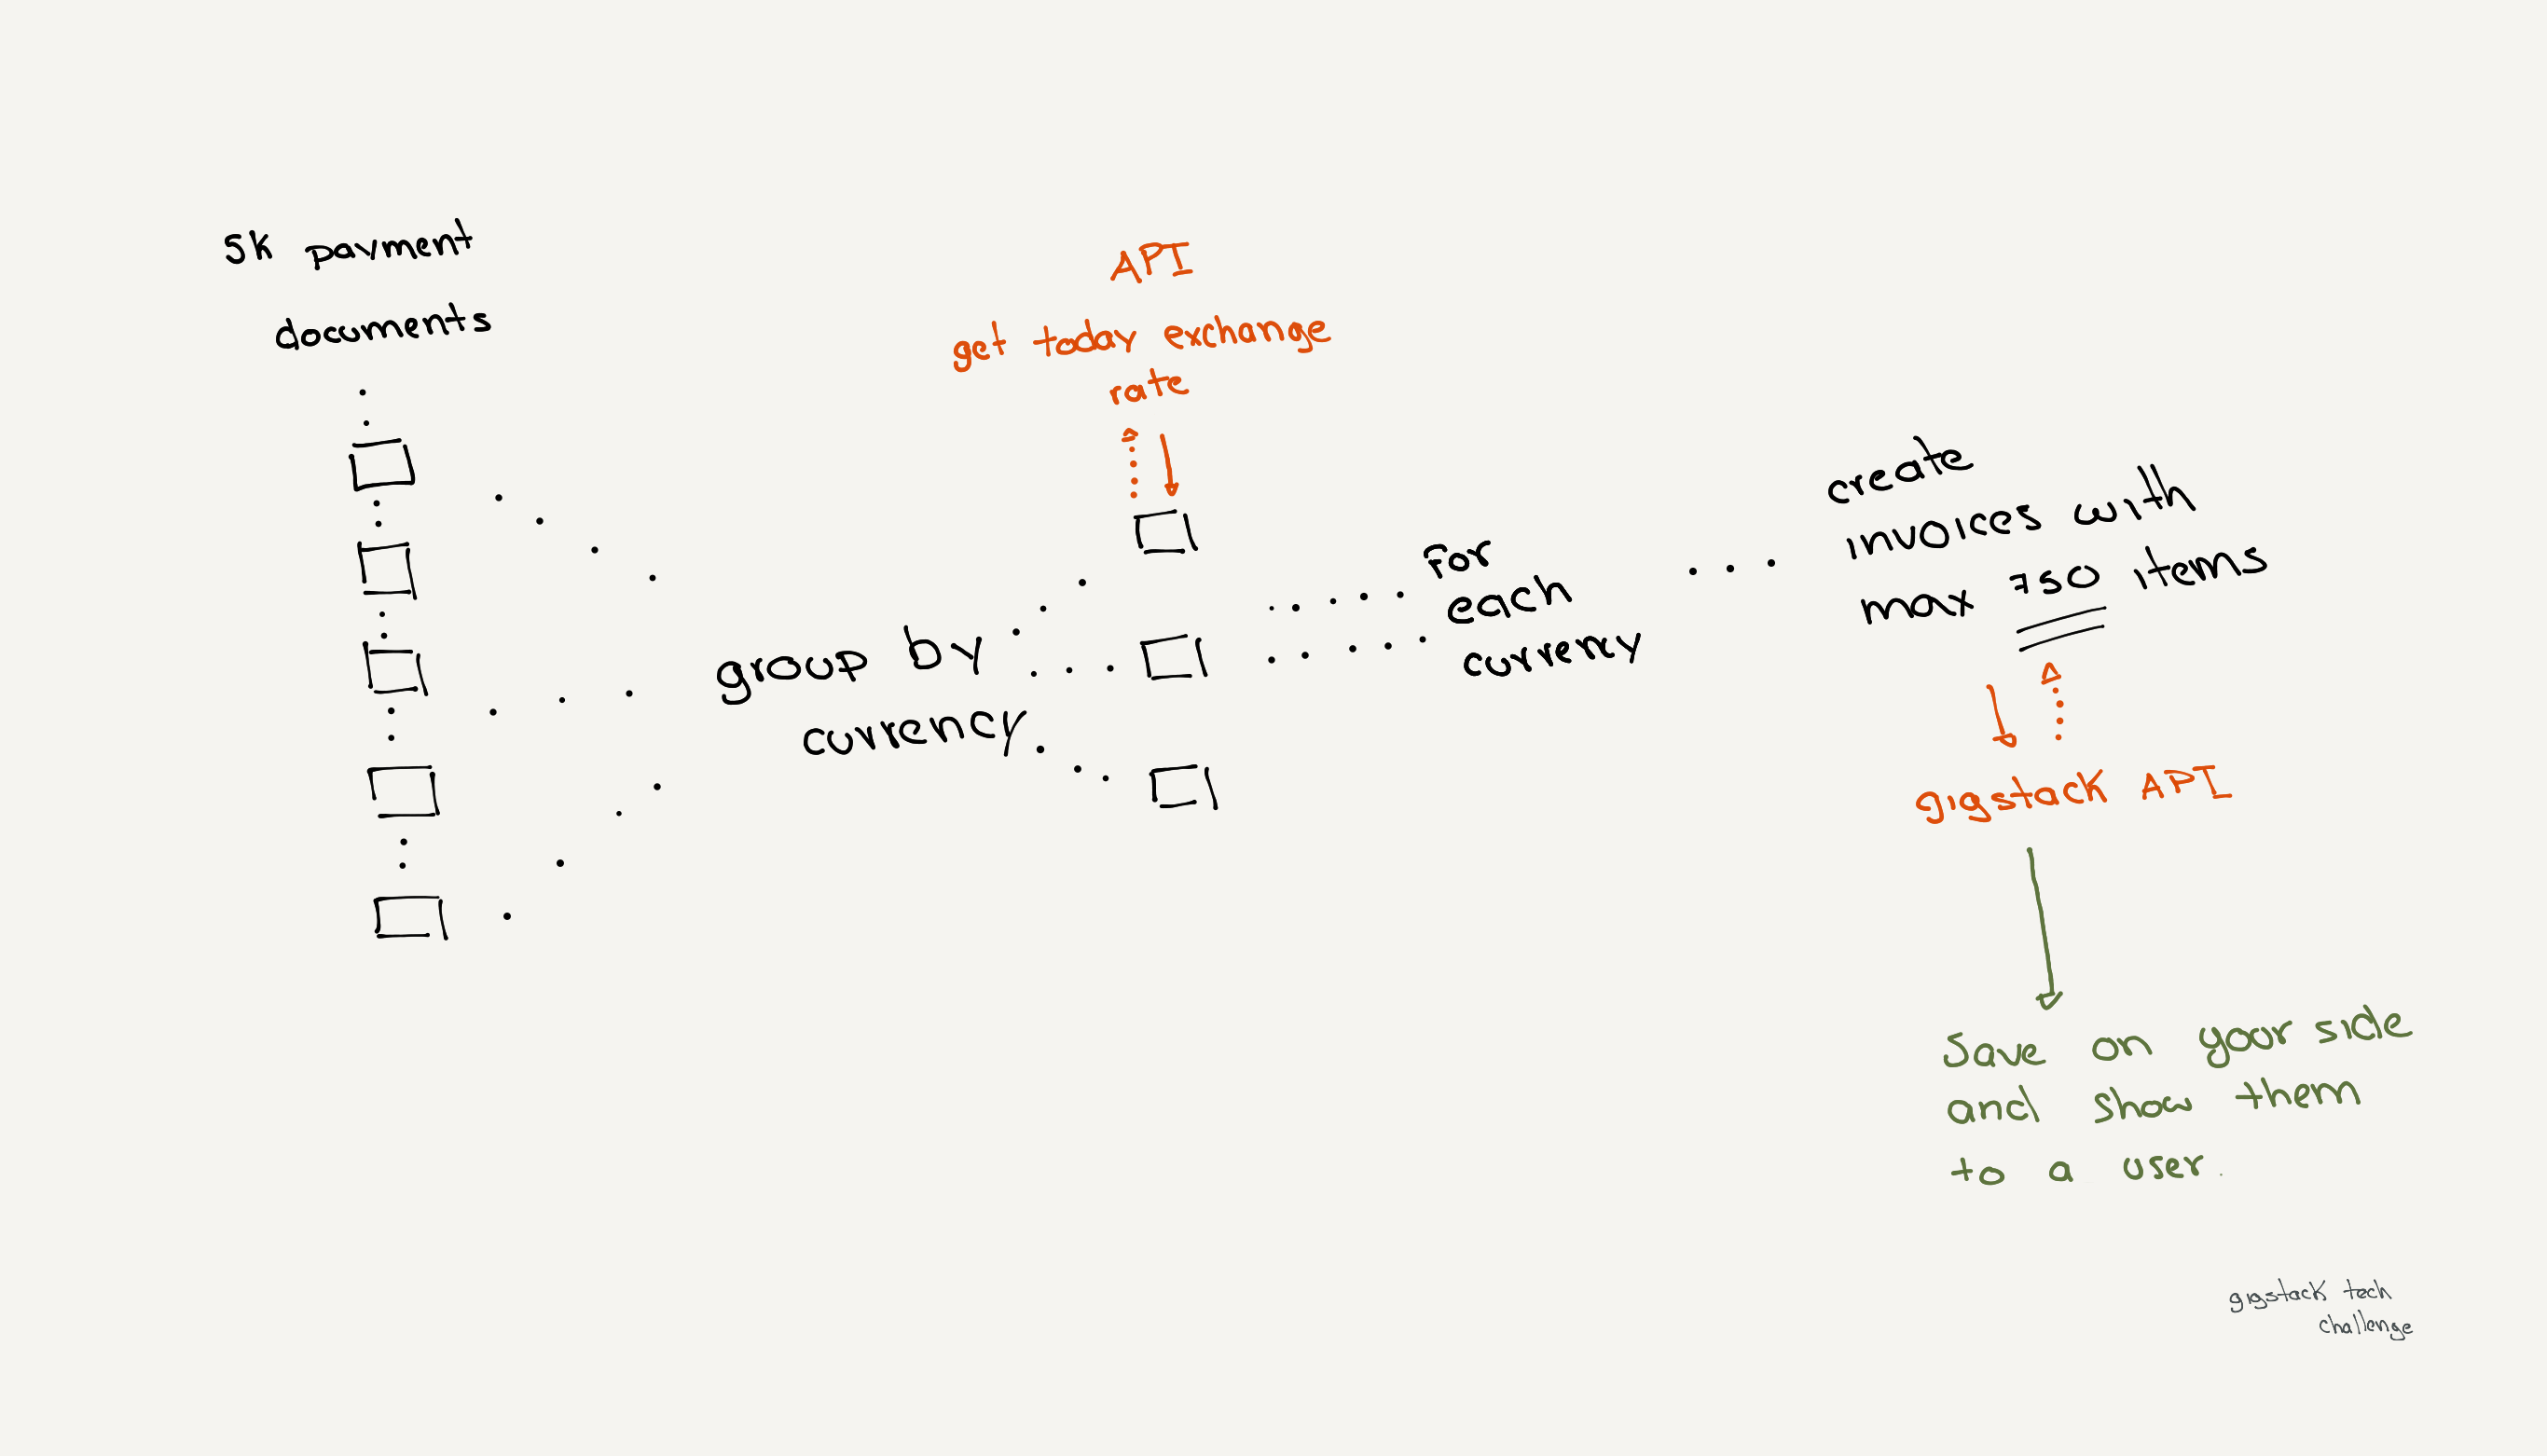 5k payment
documents
API
get today exchange
rate
group by
currency
for
each
currency
create
invoices with
max 750 items
gigstack API
Save on your side
and show them
to a user.
gigstack tech
challenge